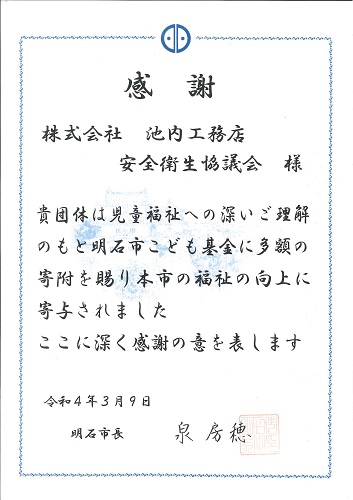 感謝
株式会社 池内工務店
安全衛生協議会 様
貴団体は児童福祉への深いご理解
のもと明石市こども基金に多額の
寄附を賜り本市の福祉の向上に
寄与されました
ここに深く感謝の意を表します
令和4年3月9日
明石市長 泉 房穂